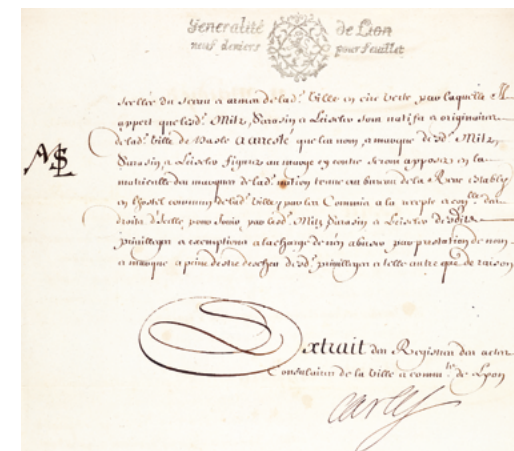 Generalité de Lion
neuf deniers pour feuillet
Scellée du Sceau et armes de lad. Ville en cire verte, par laquelle Il
appert que lesd. Mitz, Sarasin et Leisler sont natifs et originaires
de lad. Ville de Basle a arresté que les nom, et marque desd. Mitz,
Sarasin et Leisler figurez au marge cy contre seront apposez en la
matricule des marques de lad. nation tenue au bureau de la Reve establÿ
en l'hostel commun de lad. Ville par les Commis a la recepte et des
droits d'icelle pour Jouir par lesd. Mitz Sarasin et Leisler desdits
privilleges et exemptions a la charge de n'en abuser par prestation de nom
et marque a peine d'estre descheu desd. privilleges et telle autre que de raison
MSL
Extrait des Registres des actes
Consulaires de la Ville et comm.té de Lyon